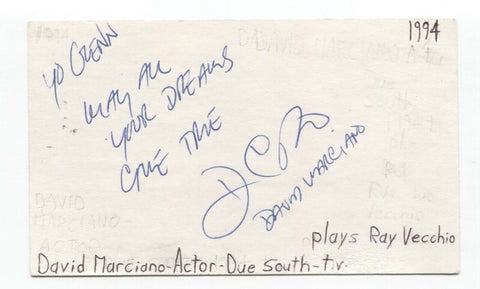 1994
YO GLENN
MAY ALL
YOUR DREAMS
COME TRUE
DAVID MARCIANO
plays Ray Vecchio
David Marciano-Actor-Due South-t.v.
DAVID
MARCIANO-
ACTOR